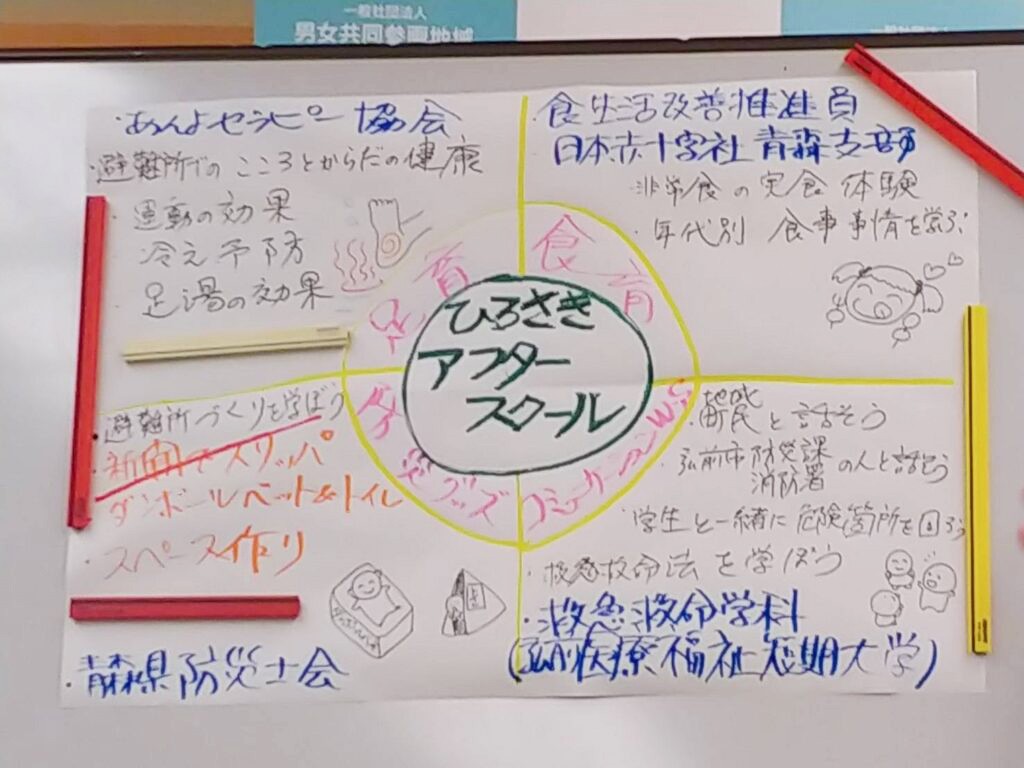 一般社団法人
男女共同参画地域
一般社団法人
・あんよセラピー協会
・避難所でのこころとからだの健康
・運動の効果
冷え予防
・足湯の効果
足育
食生活改善推進員
日本赤十字社 青森支部
・非常食の実食体験
・年代別 食事事情を学ぶ
食育
ひろさき
アフター
スクール
・避難所づくりを学ぼう
・新聞でスリッパ
ダンボールベット&トイレ
・スペース作り
・青森県防災士会
防災グッズ
コミュニケーションWS
地域
・町民と話そう
・弘前市防災課
消防署
の人と話そう
・学生と一緒に危険箇所を回ろう
・救急救命法を学ぼう
・救急救命学科
(弘前医療福祉短期大学)